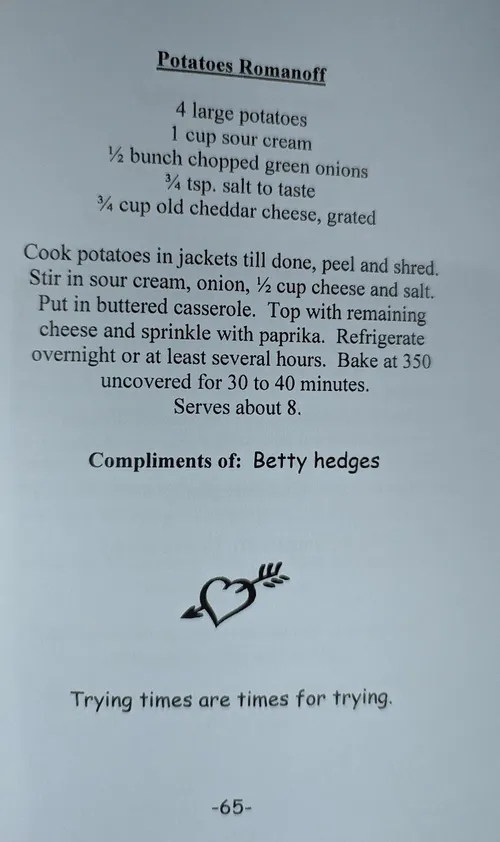 Potatoes Romanoff
4 large potatoes
1 cup sour cream
½ bunch chopped green onions
¾ tsp. salt to taste
¾ cup old cheddar cheese, grated
Cook potatoes in jackets till done, peel and shred.
Stir in sour cream, onion, ½ cup cheese and salt.
Put in buttered casserole.  Top with remaining
cheese and sprinkle with paprika.  Refrigerate
overnight or at least several hours.  Bake at 350
uncovered for 30 to 40 minutes.
Serves about 8.
Compliments of:  Betty hedges
Trying times are times for trying.
-65-